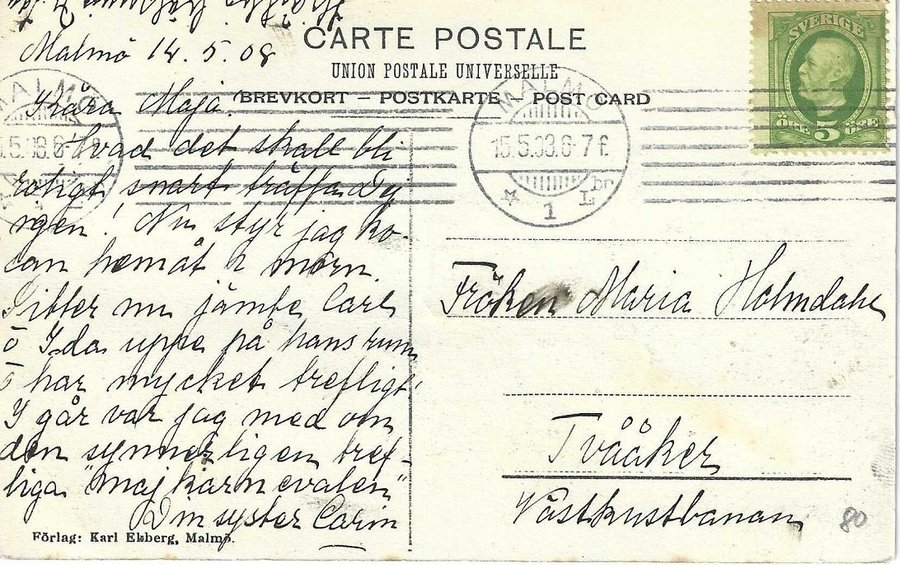 Malmö 14.5.08
CARTE POSTALE
UNION POSTALE UNIVERSELLE
BREVKORT – POSTKARTE POST CARD
SVERIGE
ÖRE 5 ÖRE
MALMÖ
15.5.08.6-7 f.
1 L. br.
Kjära Maja!
Hvad det skall bli
roligt snart träffa Dy
ngen! Nu styr jag ko-
san hemåt i morn.
Sitter nu jämte Carl
o Ida uppe på hans rum
o har mycket trefligt.
I går var jag med om
den synnerligen tref-
liga "majkarnevalen"
Din syster Carin
Fröken Maria Holmdahl
Tvååker
Västkustbanan
80
Förlag: Karl Ekberg, Malmö.